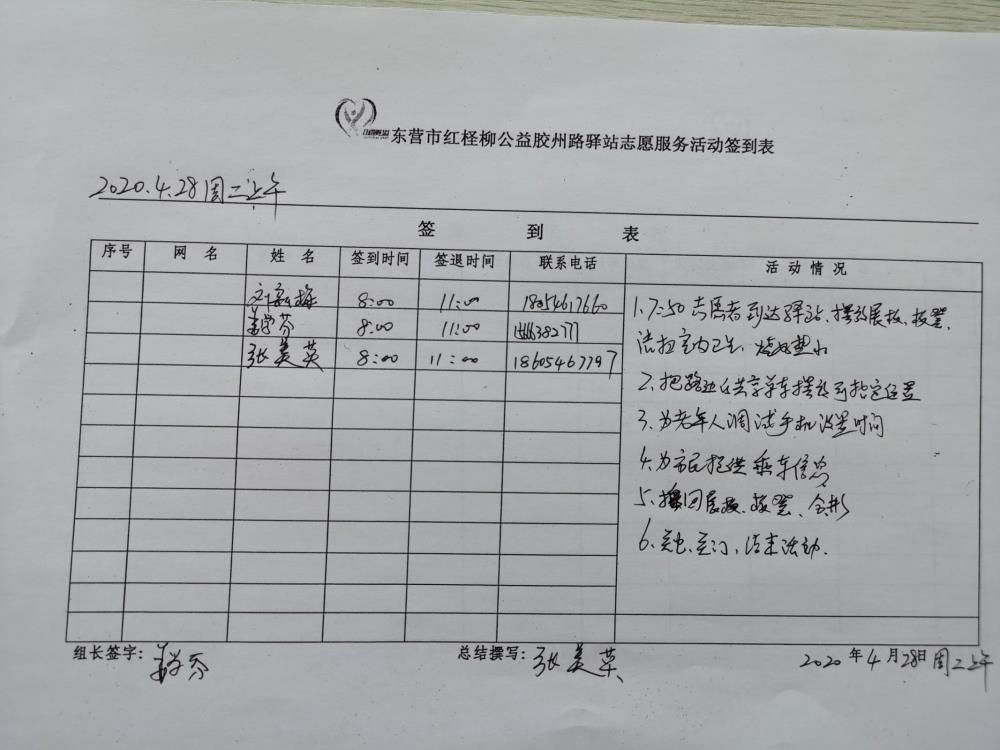 东营市红柽柳公益胶州路驿站志愿服务活动签到表
2020.4.28周二上午
签 到 表
序号 网 名 姓 名 签到时间 签退时间 联系电话 活 动 情 况
8:00 11:00 18054617660
8:00 11:00
张美英 8:00 11:00 18605467797
1.7:50志愿者到达驿站、摆放展板、板凳、
清扫室内卫生、烧好热水
2、把路边的共享单车摆放到指定位置
3、为老年人调试手机设置时间
4、为市民提供乘车信息
5、搬回展板、板凳、合影
6、关电、关门,结束活动.
组长签字: 总结撰写:张美英 2020年4月28日周二上午